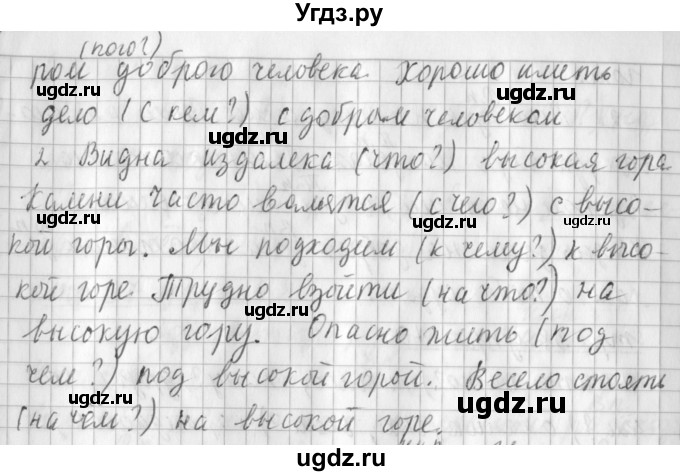 Угдз.ру
(кого?)
ром доброго человека. Хорошо иметь
дело (с кем?) с добрым человеком
2. Видна издалека (что?) высокая гора
Камни часто валятся (с чего?) с высо-
кой горы. Мы подходим (к чему?) к высо-
кой горе. Трудно взойти (на что?) на
высокую гору. Опасно жить (под
чем?) под высокой горой. Весело стоять
(на чём?) на высокой горе.
ugdz.ru
ugdz.ru
ugdz.ru
ugdz.ru
ugdz.ru
ugdz.ru
ugdz.ru
ugdz.ru
ugdz.ru
ugdz.ru
ugdz.ru
ugdz.ru
ugdz.ru
ugdz.ru